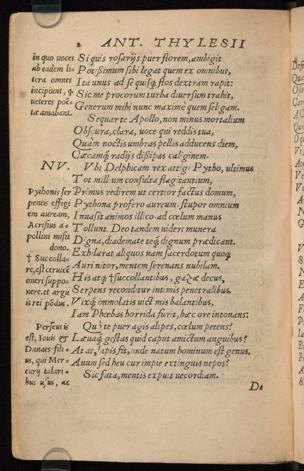 2 ANT. THYLESII
in quo uoces
ab eadem li-
tera omnes
incipiunt, q
ueteres poë-
tæ amabant.
Si quis rosarijs puer florem, ambigit
Potissimum sibi legat quem ex omnibus,
Ita unus ad se quisq; flos dextram rapit:
Sic me procorum turba diuersum trahit,
Generum mihi nunc maxime quem seligam.
Sequar te Apollo, non minus mortalium
Obscura, clara, uoce qui reddis tua,
Quàm noctis umbras pelli adducens diem,
Cæcamq; radijs dissipas caliginem.
NV. Vbi Delphicam rex attigi Pytho, ultimus
Tot millium consulta flagitantium,
Primus redirem ut certior factus domum,
Pythona profero aureum. stupor omnium
Inuasit animos illico. ad cœlum manus
Tollunt. Deo tandem uideri munera
Digna, diademate q; dignum prædicant.
Exhilarat aliquos nam sacerdotum quoq;
Auri nitor, mentem serenans nubilam.
His atq; † succollantibus, gazæ decus,
Serpens reconditur intimis penetralibus.
Vixq; immolatis uictimis balantibus,
Iam Phœbas horrida furit, hæc ore intonans:
Pythonis ser
pentis effigi
em auream,
Acrisius a-
pollini misit
dono.
† Succolla-
re, est ceruice
oneri suppo-
nere. et argu
it rei pondus.
Persei is
est, Iouis &
Danaës fili-
us, qui Mer-
curij talari-
bus usus, ac
Quò te puer agis alipes, cœlum petens?
Læuaq; gestas quid caput amictum anguibus?
At at, lapis fit, unde natum hominum est genus.
Auum sed heu cur impie extinguis nepos?
Sic fata, mentis expuit uecordiam.
De